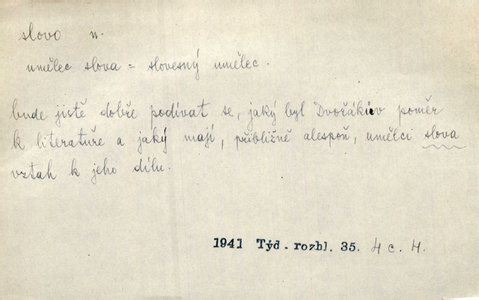 slovo n.
umělec slova = slovesný umělec.
bude jistě dobře podívat se, jaký byl Dvořákův poměr
k literatuře a jaký mají, přibližně alespoň, umělci slova
vztah k jeho dílu.
1941 Týd. rozhl. 35. 4 c. 4.